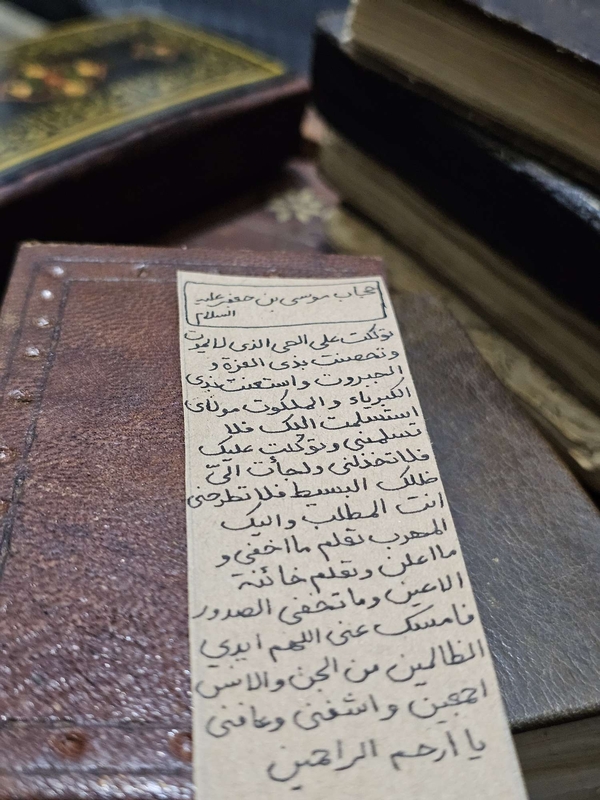 حجاب موسى بن جعفر عليه
السلام
توكلت على الحي الذي لا يموت
وتحصنت بذي العزة و
الجبروت واستعنت بذي
الكبرياء والملكوت مولاي
استسلمت اليك فلا
تسلمني وتوكلت عليك
فلا تخذلني ولجأت الى
ظلك البسيط فلا تطرحني
انت المطلب واليك
المهرب تعلم ما اخفي و
ما اعلن وتعلم خائنة
الاعين وما تخفى الصدور
فامسك عني اللهم ايدي
الظالمين من الجن والانس
اجمعين واشفني وعافني
يا ارحم الراحمين